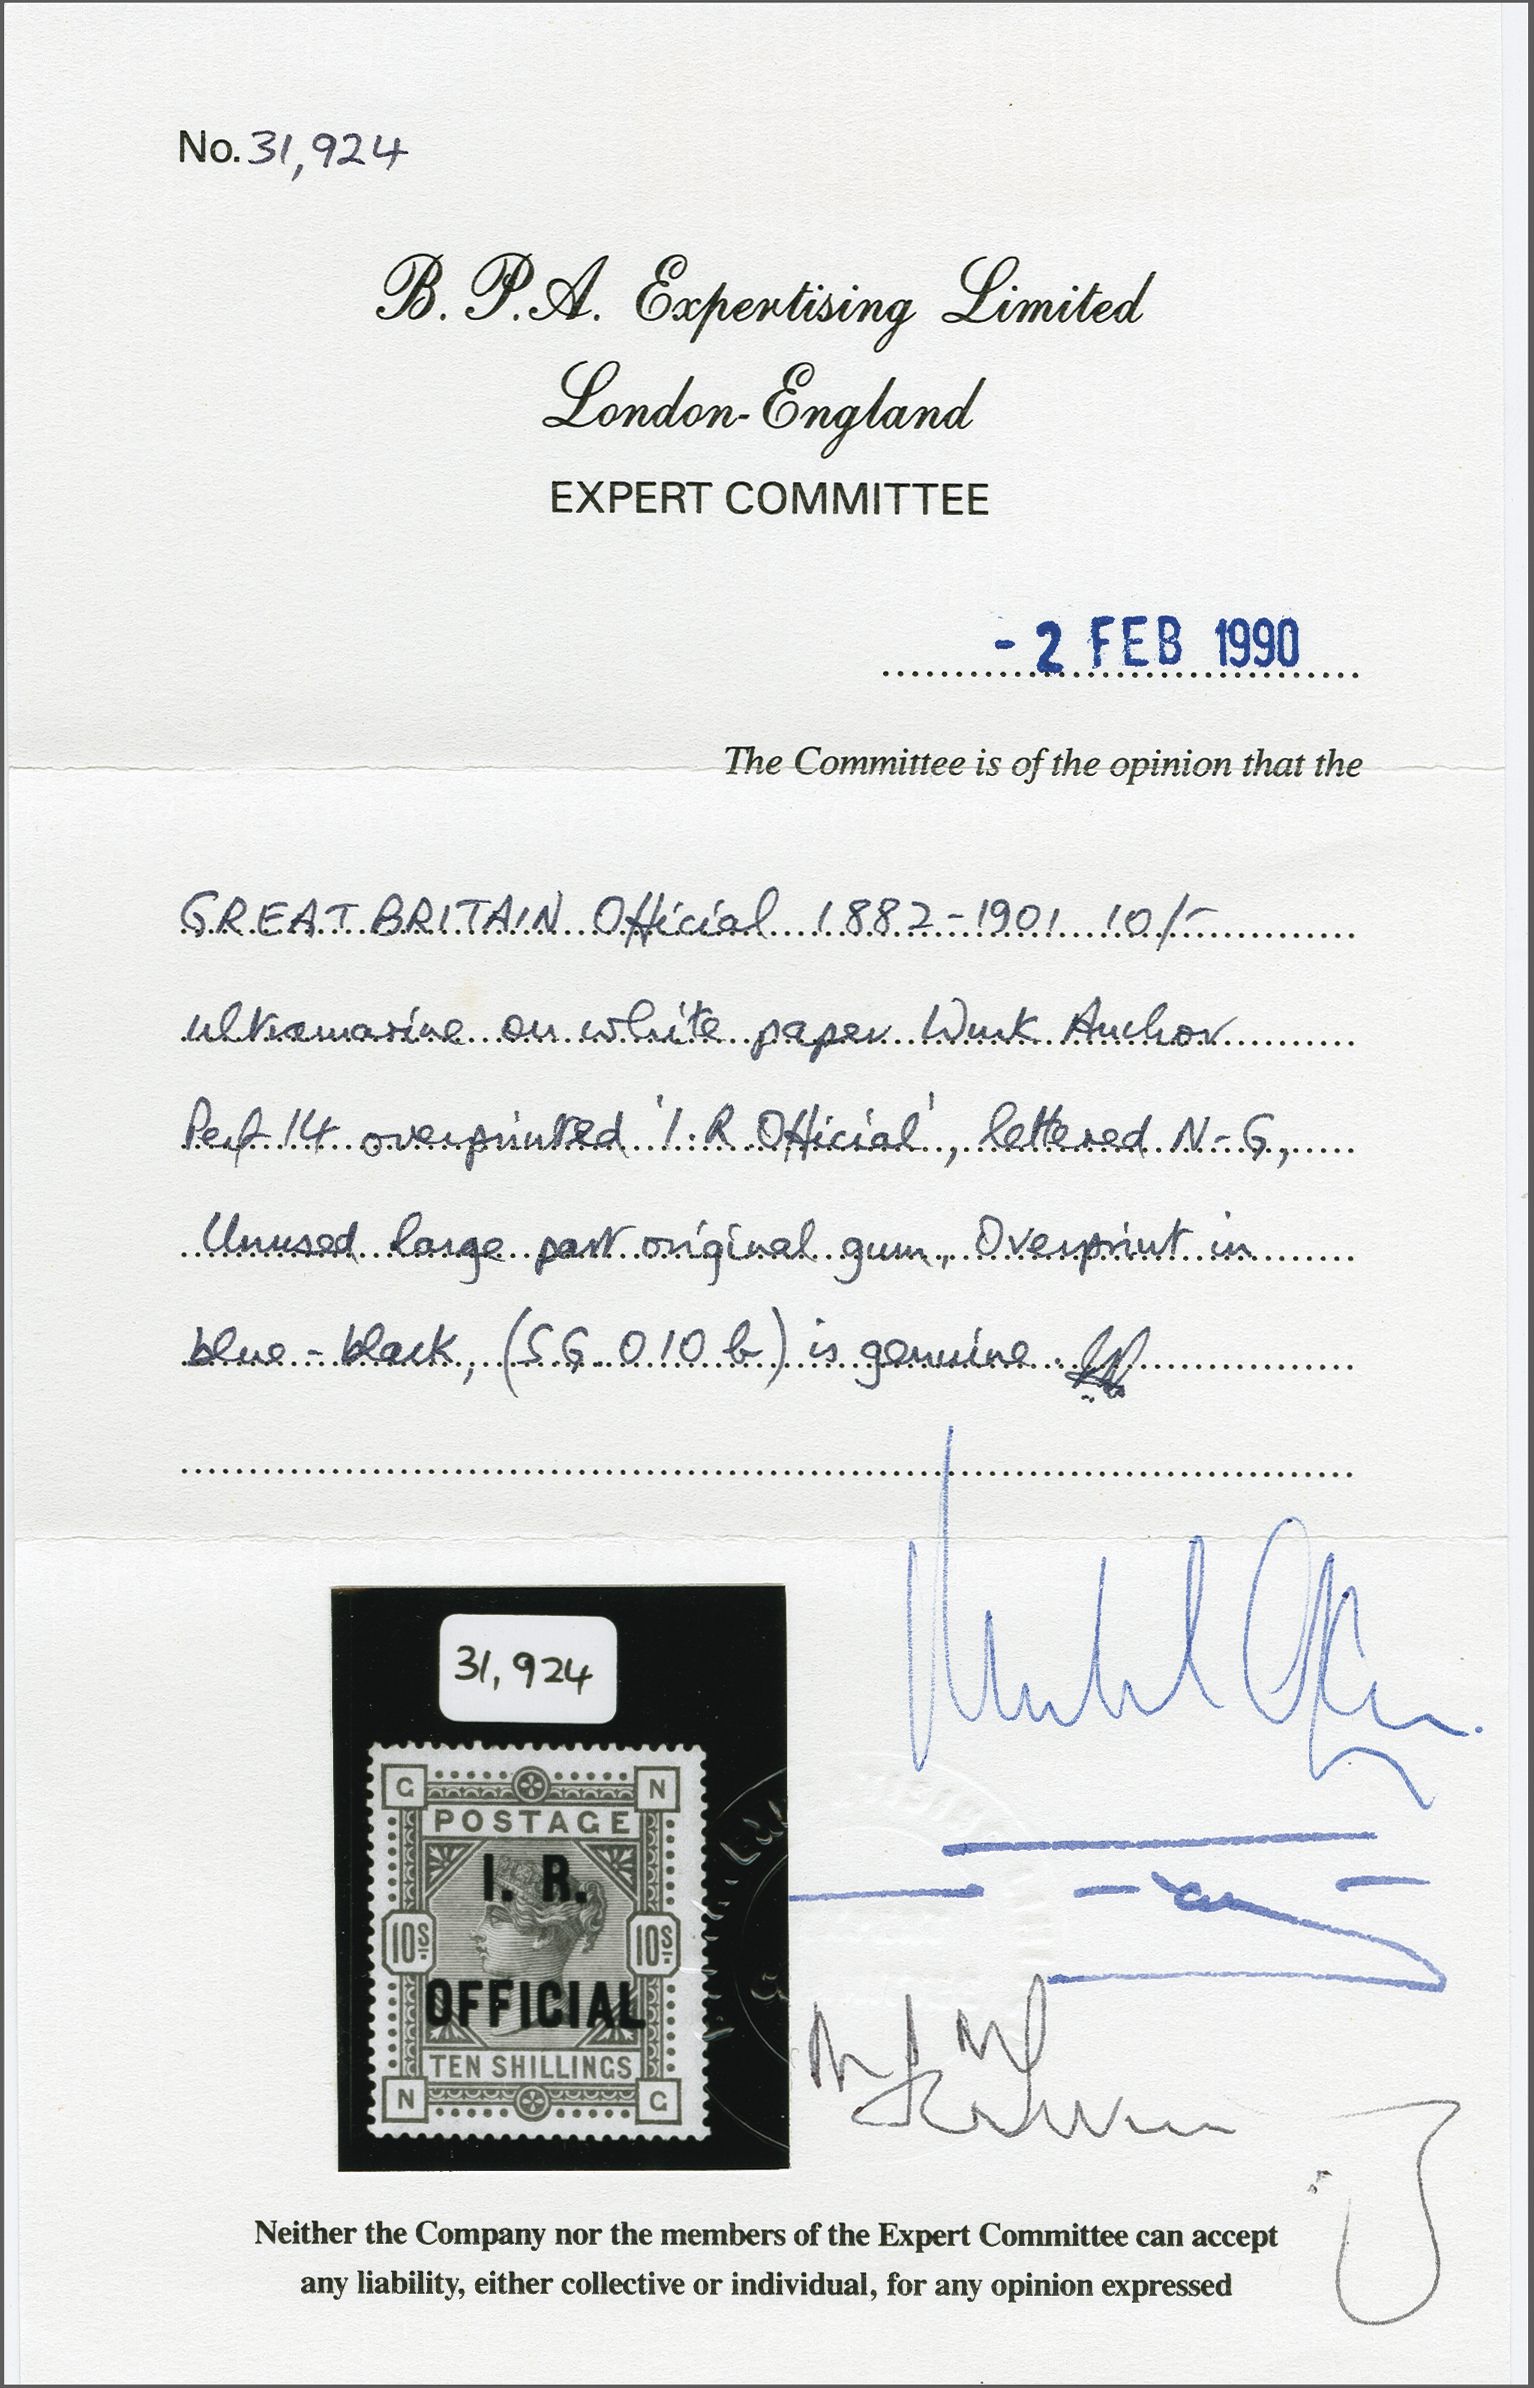 No. 31,924
B. P. A. Expertising Limited
London-England
EXPERT COMMITTEE
- 2 FEB 1990
The Committee is of the opinion that the
GREAT BRITAIN Official 1882-1901 10/-
ultramarine on white paper Wmk Anchor
Perf 14 overprinted 'I.R Official', lettered N-G,
Unused large part original gum, Overprint in
blue-black, (SG O10b) is genuine.
31,924
G N
POSTAGE
I. R.
10S 10S
OFFICIAL
TEN SHILLINGS
N G
Neither the Company nor the members of the Expert Committee can accept
any liability, either collective or individual, for any opinion expressed